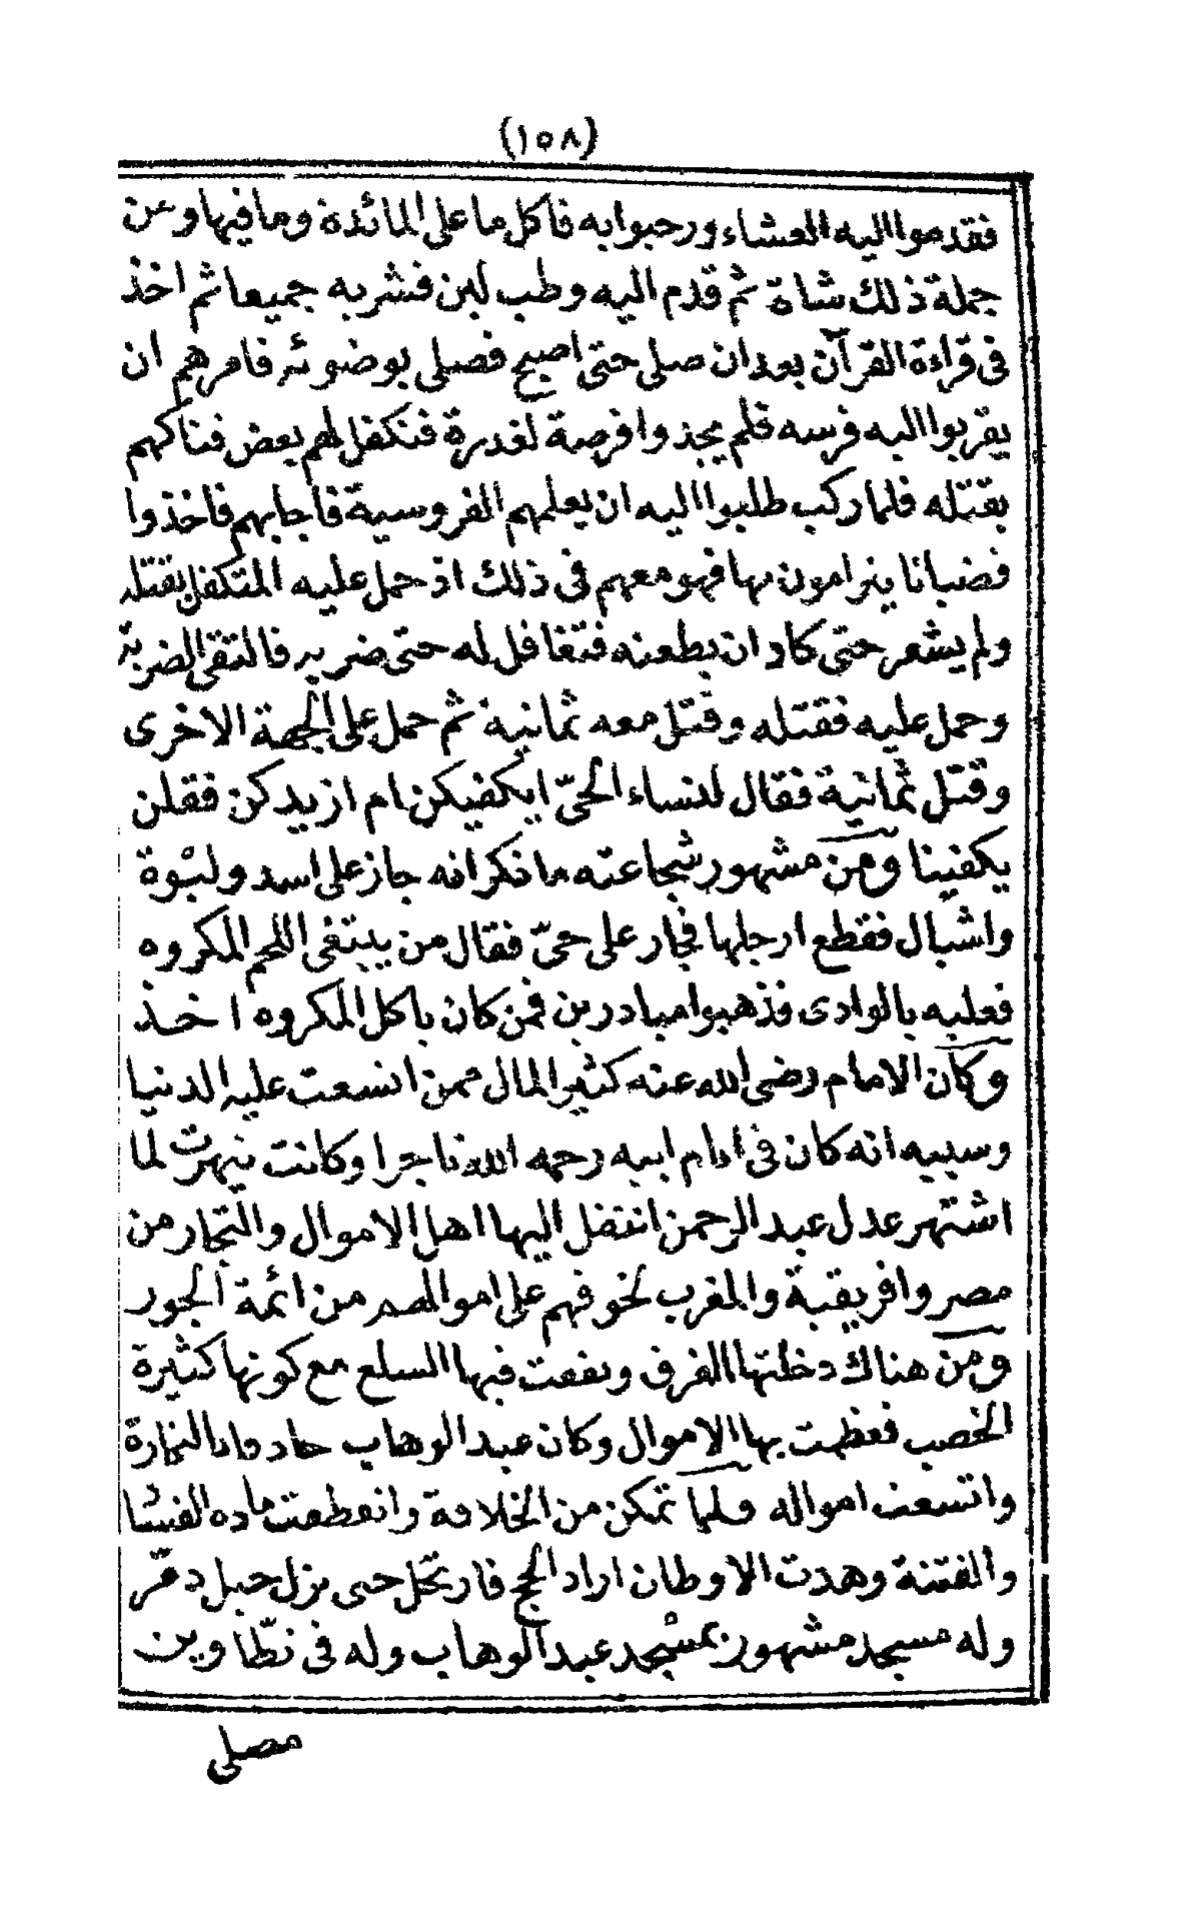 (١٥٨)
فقدموا اليه العشاء ورحبوا به فاكل ما على المائدة وما فيها وعن
جملة ذلك شاة ثم قدم اليه وطب لبن فشربه جميعا ثم اخذ
فى قراءة القرآن بعد ان صلى حتى اصبح فصلى بوضوئه فامرهم ان
يقربوا اليه فرسه فلم يجدوا فرصة لغدرة فتكفل لهم بعض فتاكهم
بقتله فلما ركب طلبوا اليه ان يعلمهم الفروسية فاجابهم فاخذوا
قضبانا يترامون بها فهو معهم فى ذلك اذ حمل عليه المتكفل بقتله
ولم يشعر حتى كاد ان يطعنه فتغافل له حتى ضربه فالتقى الضربة
وحمل عليه فقتله وقتل معه ثمانية ثم حمل على الجهة الاخرى
وقتل ثمانية فقال لنساء الحىّ ايكفيكن ام ازيدكن فقلن
يكفينا ومن مشهور شجاعته ما ذكر انه جاز على اسد ولبْوة
واشبال فقطع ارجلها فجار على حىّ فقال من يبتغى اللحم المكروه
فعليه بالوادى فذهبوا مبادرين فمن كان ياكل المكروه اخذ
وكان الامام رضى الله عنه كثير المال ممن اتسعت عليه الدنيا
وسببه انه كان فى ايام ابيه رحمه الله تاجرا وكانت تيهرت لما
اشتهر عدل عبد الرحمن انتقل اليها اهل الاموال والتجار من
مصر وافريقية والمغرب لخوفهم على اموالهم من ائمة الجور
ومن هناك دخلتها الفرق ونفقت فيها السلع مع كونها كثيرة
الخصب فعظمت بها الاموال وكان عبد الوهاب التجارة
واتسعت امواله فلما تمكن من الخلافة وانقطعت ماده الفسا
والفتنة وهدت الاوطان اراد الحج فارتحل حتى نزل جبل دمّر
وله مسجد مشهور بمسْجد عبد الوهاب وله فى تطّاوين
مصلى